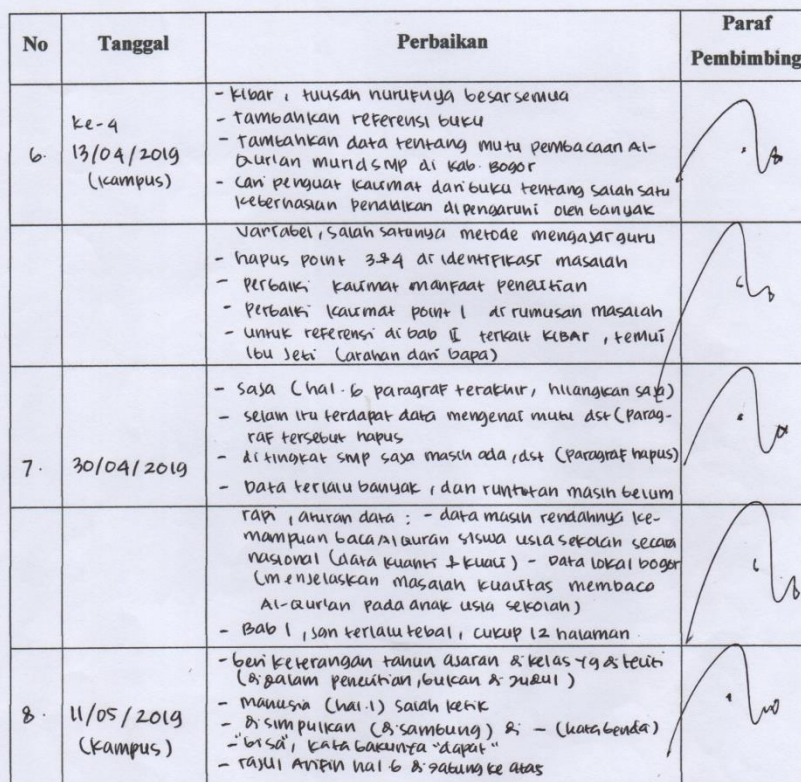 No Tanggal Perbaikan Paraf Pembimbing
- KIBAR, tulisan hurufnya besar semua
ke-4
- Tambahkan referensi buku
6. 13/04/2019
(kampus)
- Tambahkan data tentang mutu pembacaan Al-
Qur'an murid SMP di Kab. Bogor
- Cari penguat kalimat dari buku tentang salah satu
keberhasilan pendidikan dipengaruhi oleh banyak
variabel, salah satunya metode mengajar guru
- hapus point 3&4 di identifikasi masalah
- perbaiki kalimat manfaat penelitian
- perbaiki kalimat point 1 di rumusan masalah
- untuk referensi di bab II terkait KIBAR, temui
Ibu Jeti (arahan dari bapa)
- saja (hal. 6 paragraf terakhir, hilangkan saja)
- selain itu terdapat data mengenai mutu dst (parag-
raf tersebut hapus
7. 30/04/2019
- di tingkat smp saja masih ada, dst (paragraf hapus)
- Data terlalu banyak, dan runtutan masih belum
rapi, aturan data : - data masih rendahnya ke-
mampuan baca Al quran siswa usia sekolah secara
nasional (data kuanti & kuali) - Data lokal bogor
(menjelaskan masalah kualitas membaca
Al-Qur'an pada anak usia sekolah)
- Bab 1, jan terlalu tebal, cukup 12 halaman
- beri keterangan tahun ajaran & kelas yg diteliti
(di dalam penelitian, bukan di judul)
8. 11/05/2019
(kampus)
- manusia (hal.1) salah ketik
- disimpulkan (disambung) di - (kata benda)
- "bisa", kata bakunya "dapat"
- rajul Arifin hal 6 digabung ke atas